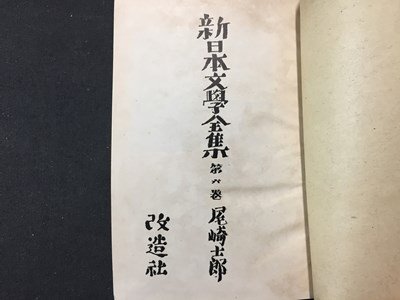 新日本文學全集 第六卷 尾崎士郎
改造社